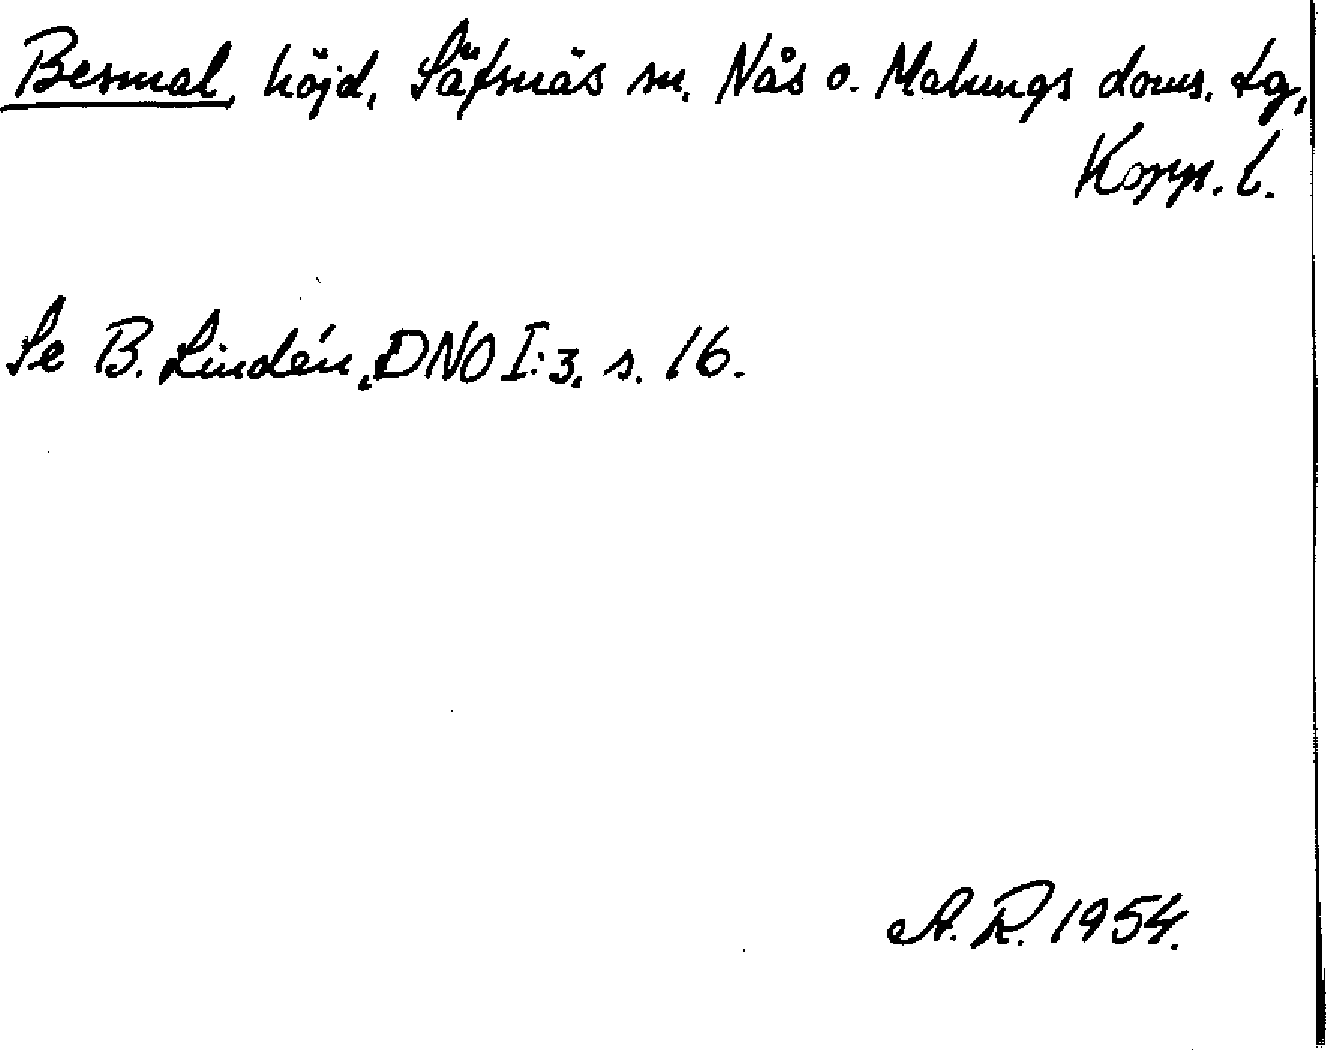 Besmal, höjd, Säfsnäs sn, Nås o. Malungs doms. tg,
Kopp. l.
Se B. Lindén, DNO I:3, s. 16.
A. R. 1954.